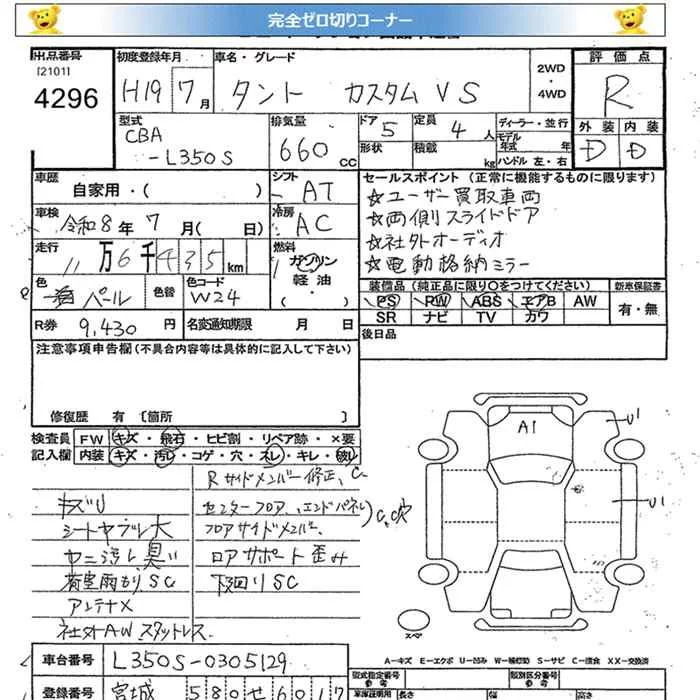 完全ゼロ切りコーナー
出品番号 初度登録年月 車名・グレード 評価点
[2101] 4296 H19 7月 タント カスタム VS 2WD・4WD R
型式 排気量 ドア 定員 ディーラー・並行 外装 内装
CBA-L350S 660cc 5 4人 モデル年式 年 D D
形状 積載 kg ハンドル 左・右
車歴 シフト セールスポイント(正常に機能するものに限ります)
自家用・( ) AT ☆ユーザー買取車両
車検 冷房 ☆両側スライドドア
令和8年7月( 日) AC ☆社外オーディオ
走行 燃料 ☆電動格納ミラー
11万6千435km ガソリン 軽油・( )
色 色替 色コード 装備品(純正品に限り○をつけてください) 新車保証書
パール W24 PS PW ABS エアB AW 有・無
SR ナビ TV カワ
R券 9,430円 名変通知期限 月 日 後日品
注意事項申告欄(不具合内容等は具体的に記入して下さい)
修復歴 有 [箇所 ]
検査員 FW キズ・飛石・ヒビ割・リペア跡・×要
記入欄 内装 キズ・汚レ・コゲ・穴・スレ・キレ・破レ
Rサイドメンバー修正、C
キズU センターフロア、エンドパネル)C,C穴
シートヤブレ大 フロアサイドメンバー
ヤニ汚レ臭い ロアサポート歪み
荷室雨もりSC 下回りSC
アンテナ×
社外AWスタットレス
A1
U1
U1
スペア
A-キズ E-エクボ U-凹み W-補修跡 S-サビ C-腐食 XX-交換済
車台番号 L350S-0305129 型式指定番号 参考 類別区分番号 参考
登録番号 宮城580せ6017 車庫証明用 長さ 幅 高さ